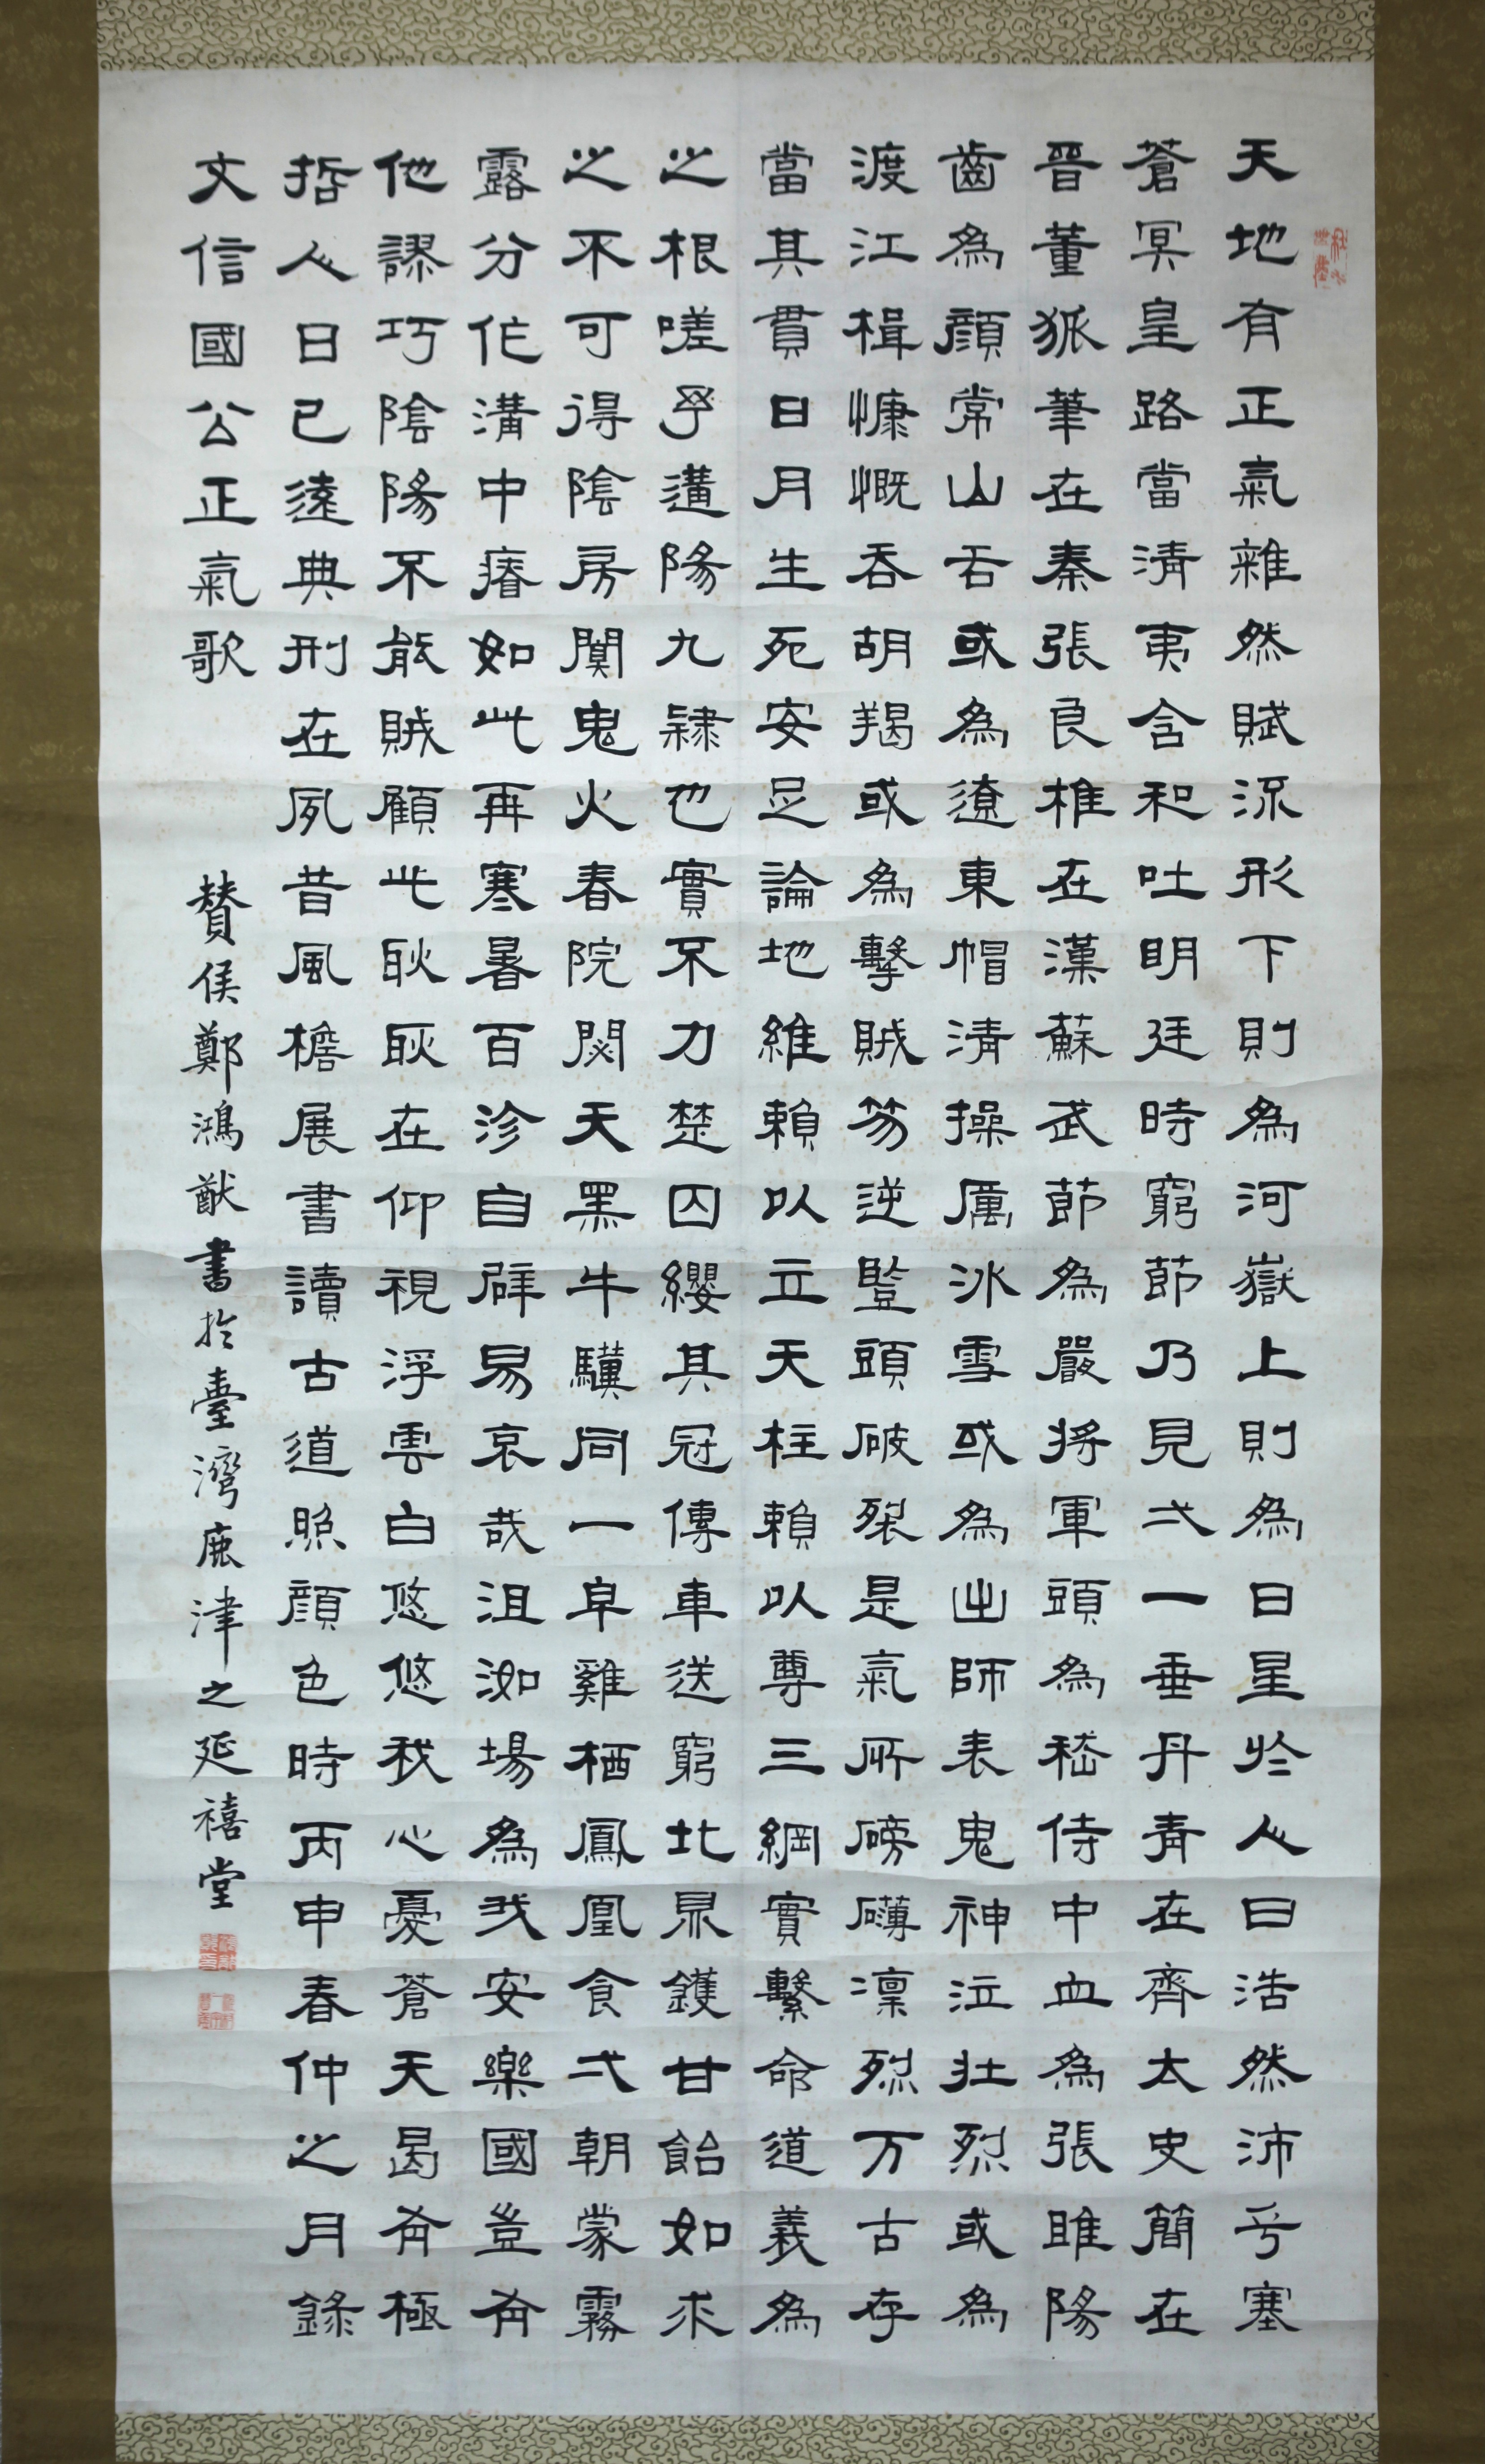 天地有正氣雜然賦流形下則為河嶽上則為日星於人曰浩然沛乎塞
蒼冥皇路當清夷含和吐明廷時窮節乃見弌一垂丹青在齊太史簡在
晉董狐筆在秦張良椎在漢蘇武節為嚴將軍頭為嵇侍中血為張睢陽
齒為顏常山舌或為遼東帽清操厲冰雪或為出師表鬼神泣壯烈或為
渡江楫慷慨吞胡羯或為擊賊笏逆豎頭破裂是氣所磅礴凜烈万古存
當其貫日月生死安足論地維賴以立天柱賴以尊三綱實繫命道義為
之根嗟乎遘陽九隸也實不力楚囚纓其冠傳車送窮北鼎鑊甘飴如求
之不可得陰房闃鬼火春院閟天黑牛驥同一皁雞栖鳳凰食弌朝蒙霧
露分作溝中瘠如此再寒暑百沴自辟易哀哉沮洳場為我安樂國豈有
他謬巧陰陽不能賊顧此耿耿在仰視浮雲白悠悠我心憂蒼天曷有極
哲人日已遠典刑在夙昔風檐展書讀古道照顏色時丙申春仲之月錄
文信國公正氣歌
贊侯鄭鴻猷書於臺灣鹿津之延禧堂